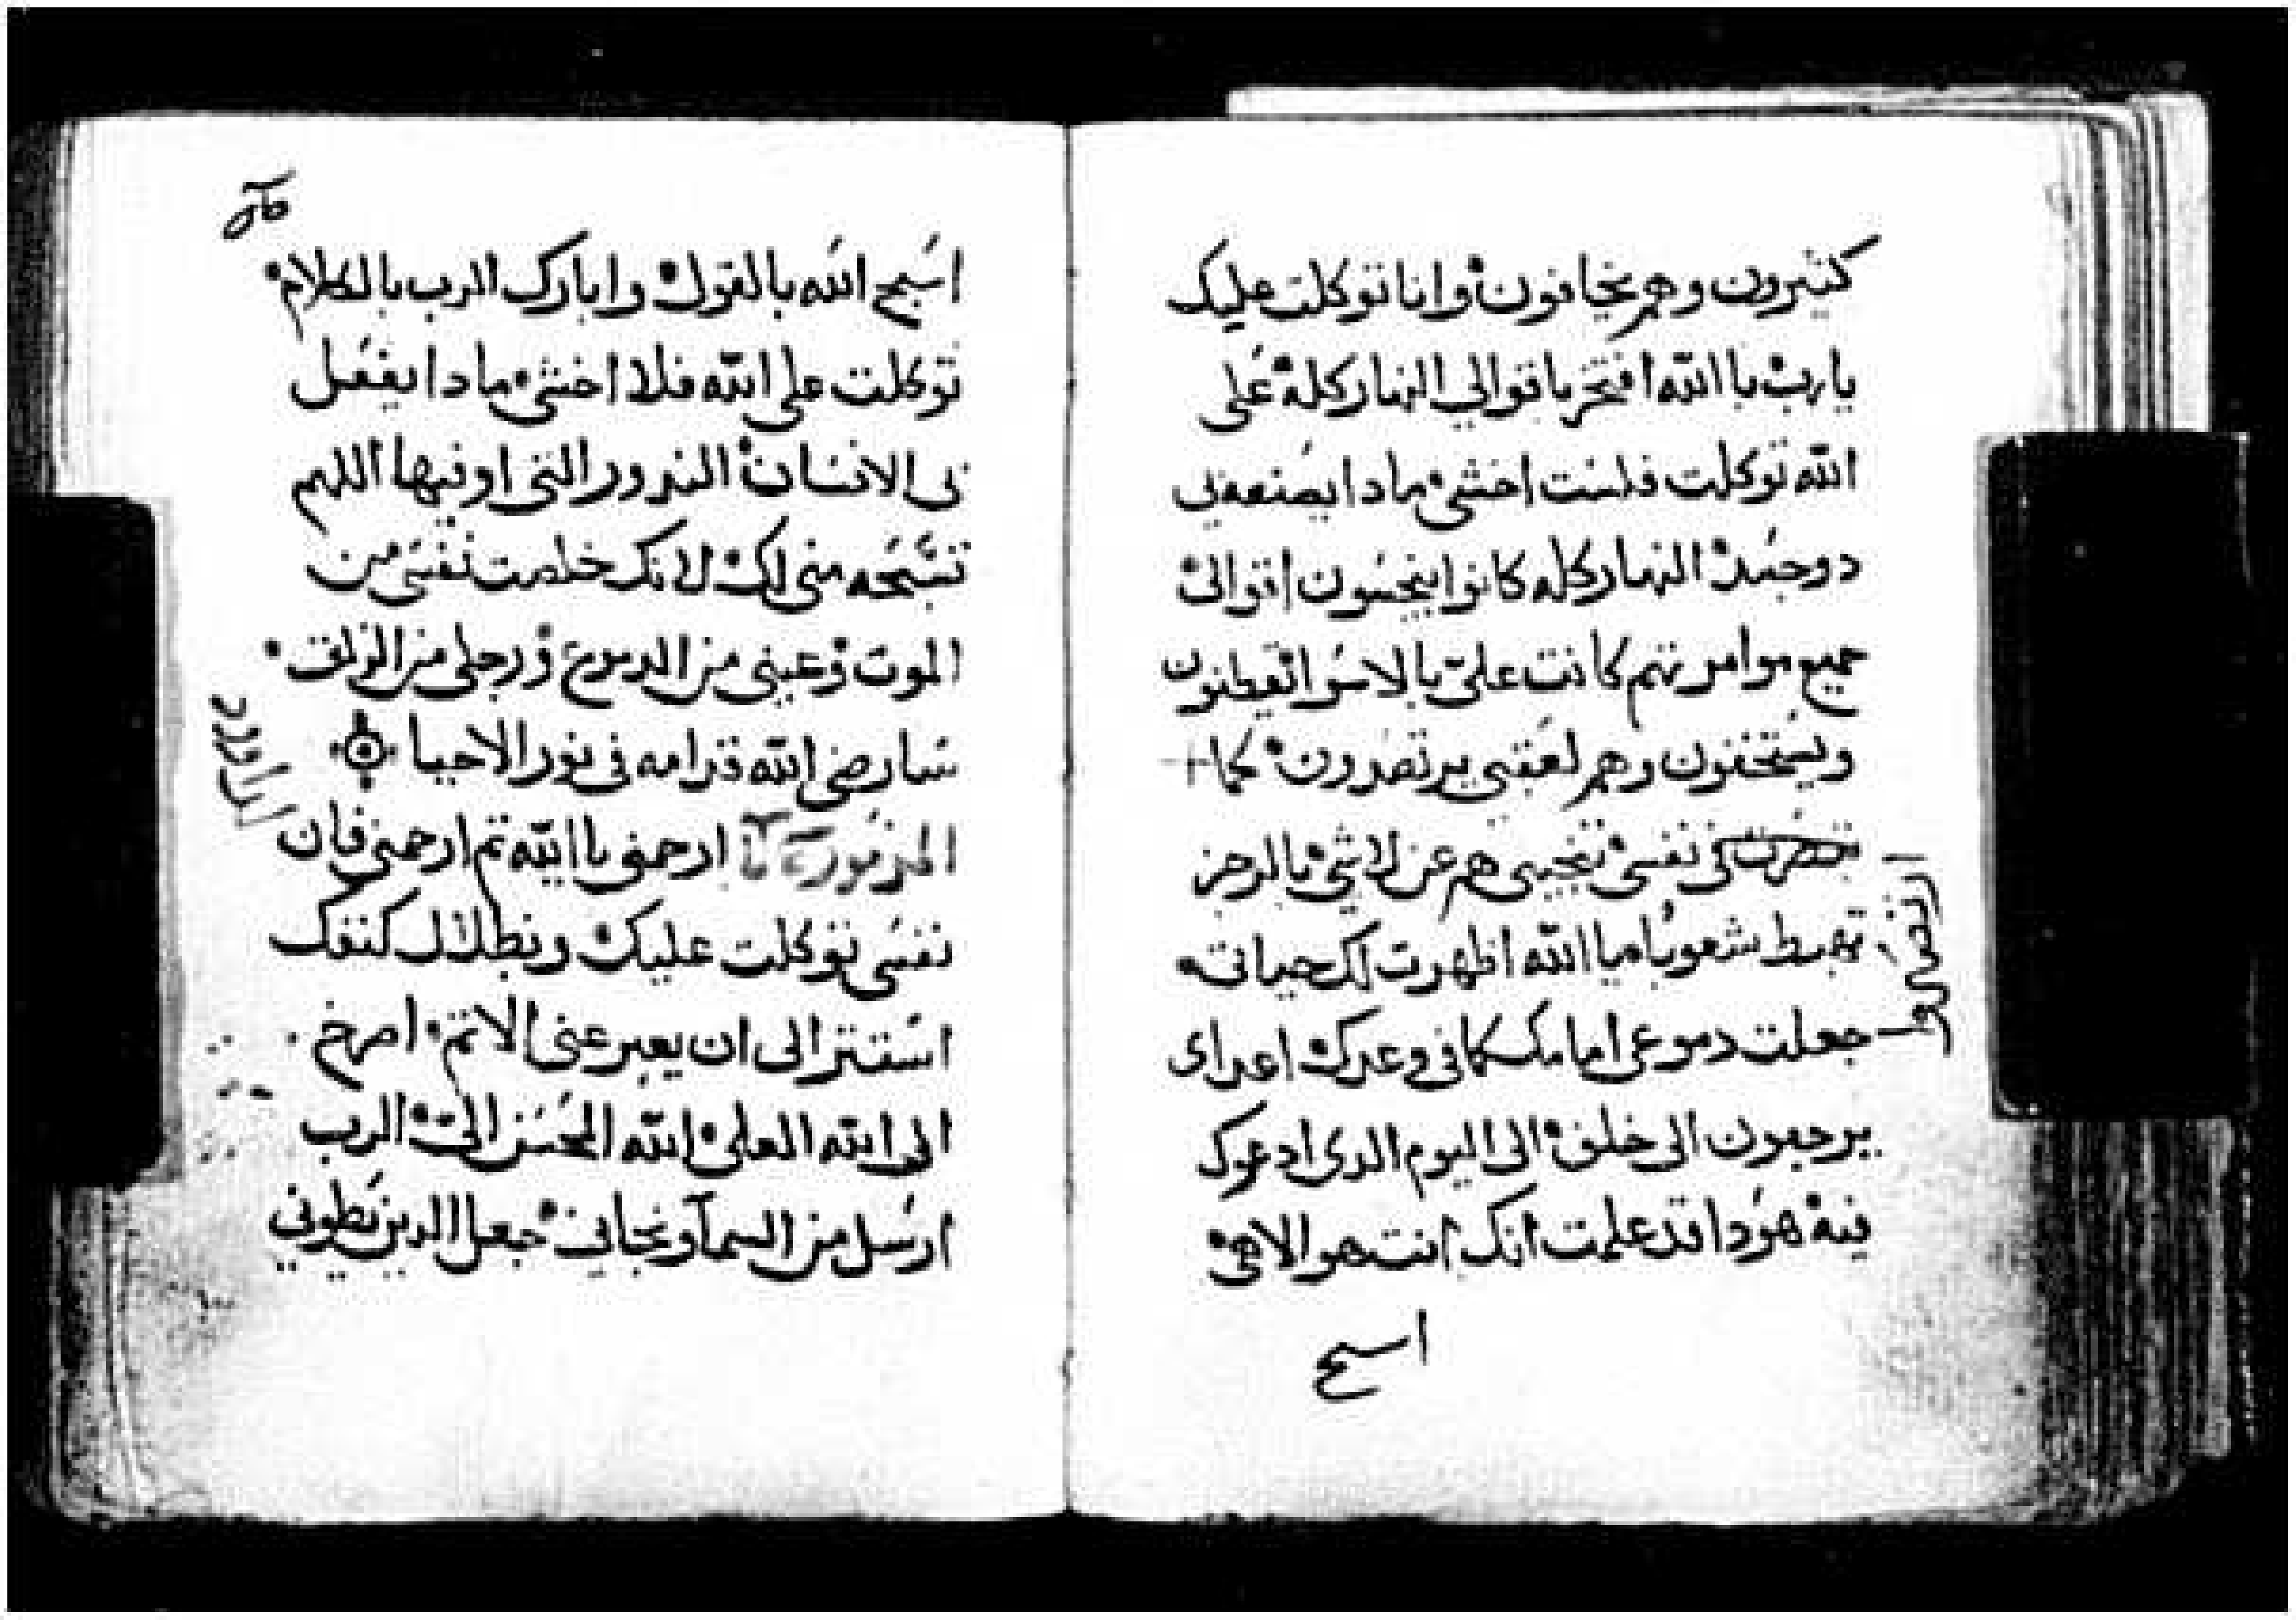 كثيرون وهم يخافون وانا توكلت عليك
يارب يا الله افتخر باقوالي النهار كله على
الله توكلت فلست اخشى مادا يصنعه بي
دو جسد النهار كله كانوا ينجسون اقوالي
جميع موامرتهم كانت علي بالاسوا يقطنون
ويستخفون وهم لعقبي يرتصدون كما
نفسي تنجيهم عن لا شي بالرجز
تهبط شعوبا يا الله اظهرت لك حياتي
جعلت دموعي امامك كما في وعدك اعداى
يرجعون الى خلف الى اليوم الدى ادعوك
فيه هودا قد علمت انك انت هو الاهي
اسبح
اسبح الله بالقول وابارك الرب بالكلام
توكلت على الله فلا اخشى مادا يفعل
بى الانسان الندور التى اوفيها اللهم
تسبحه منى لك لانك خلصت نفسي من
الموت وعيني من الدموع ورجلي من الزلق
سارضى الله قدامه فى نور الاحيا
المزمور ارحمنى يا الله تم ارحمنى فان
نفسي توكلت عليك وبظلال كنفك
استتر الى ان يعبر عنى الاتم اصرخ
الى الله العلى الله المحسن الي الرب
ارسل من السمآ ونجاني جعل الدين يطوني